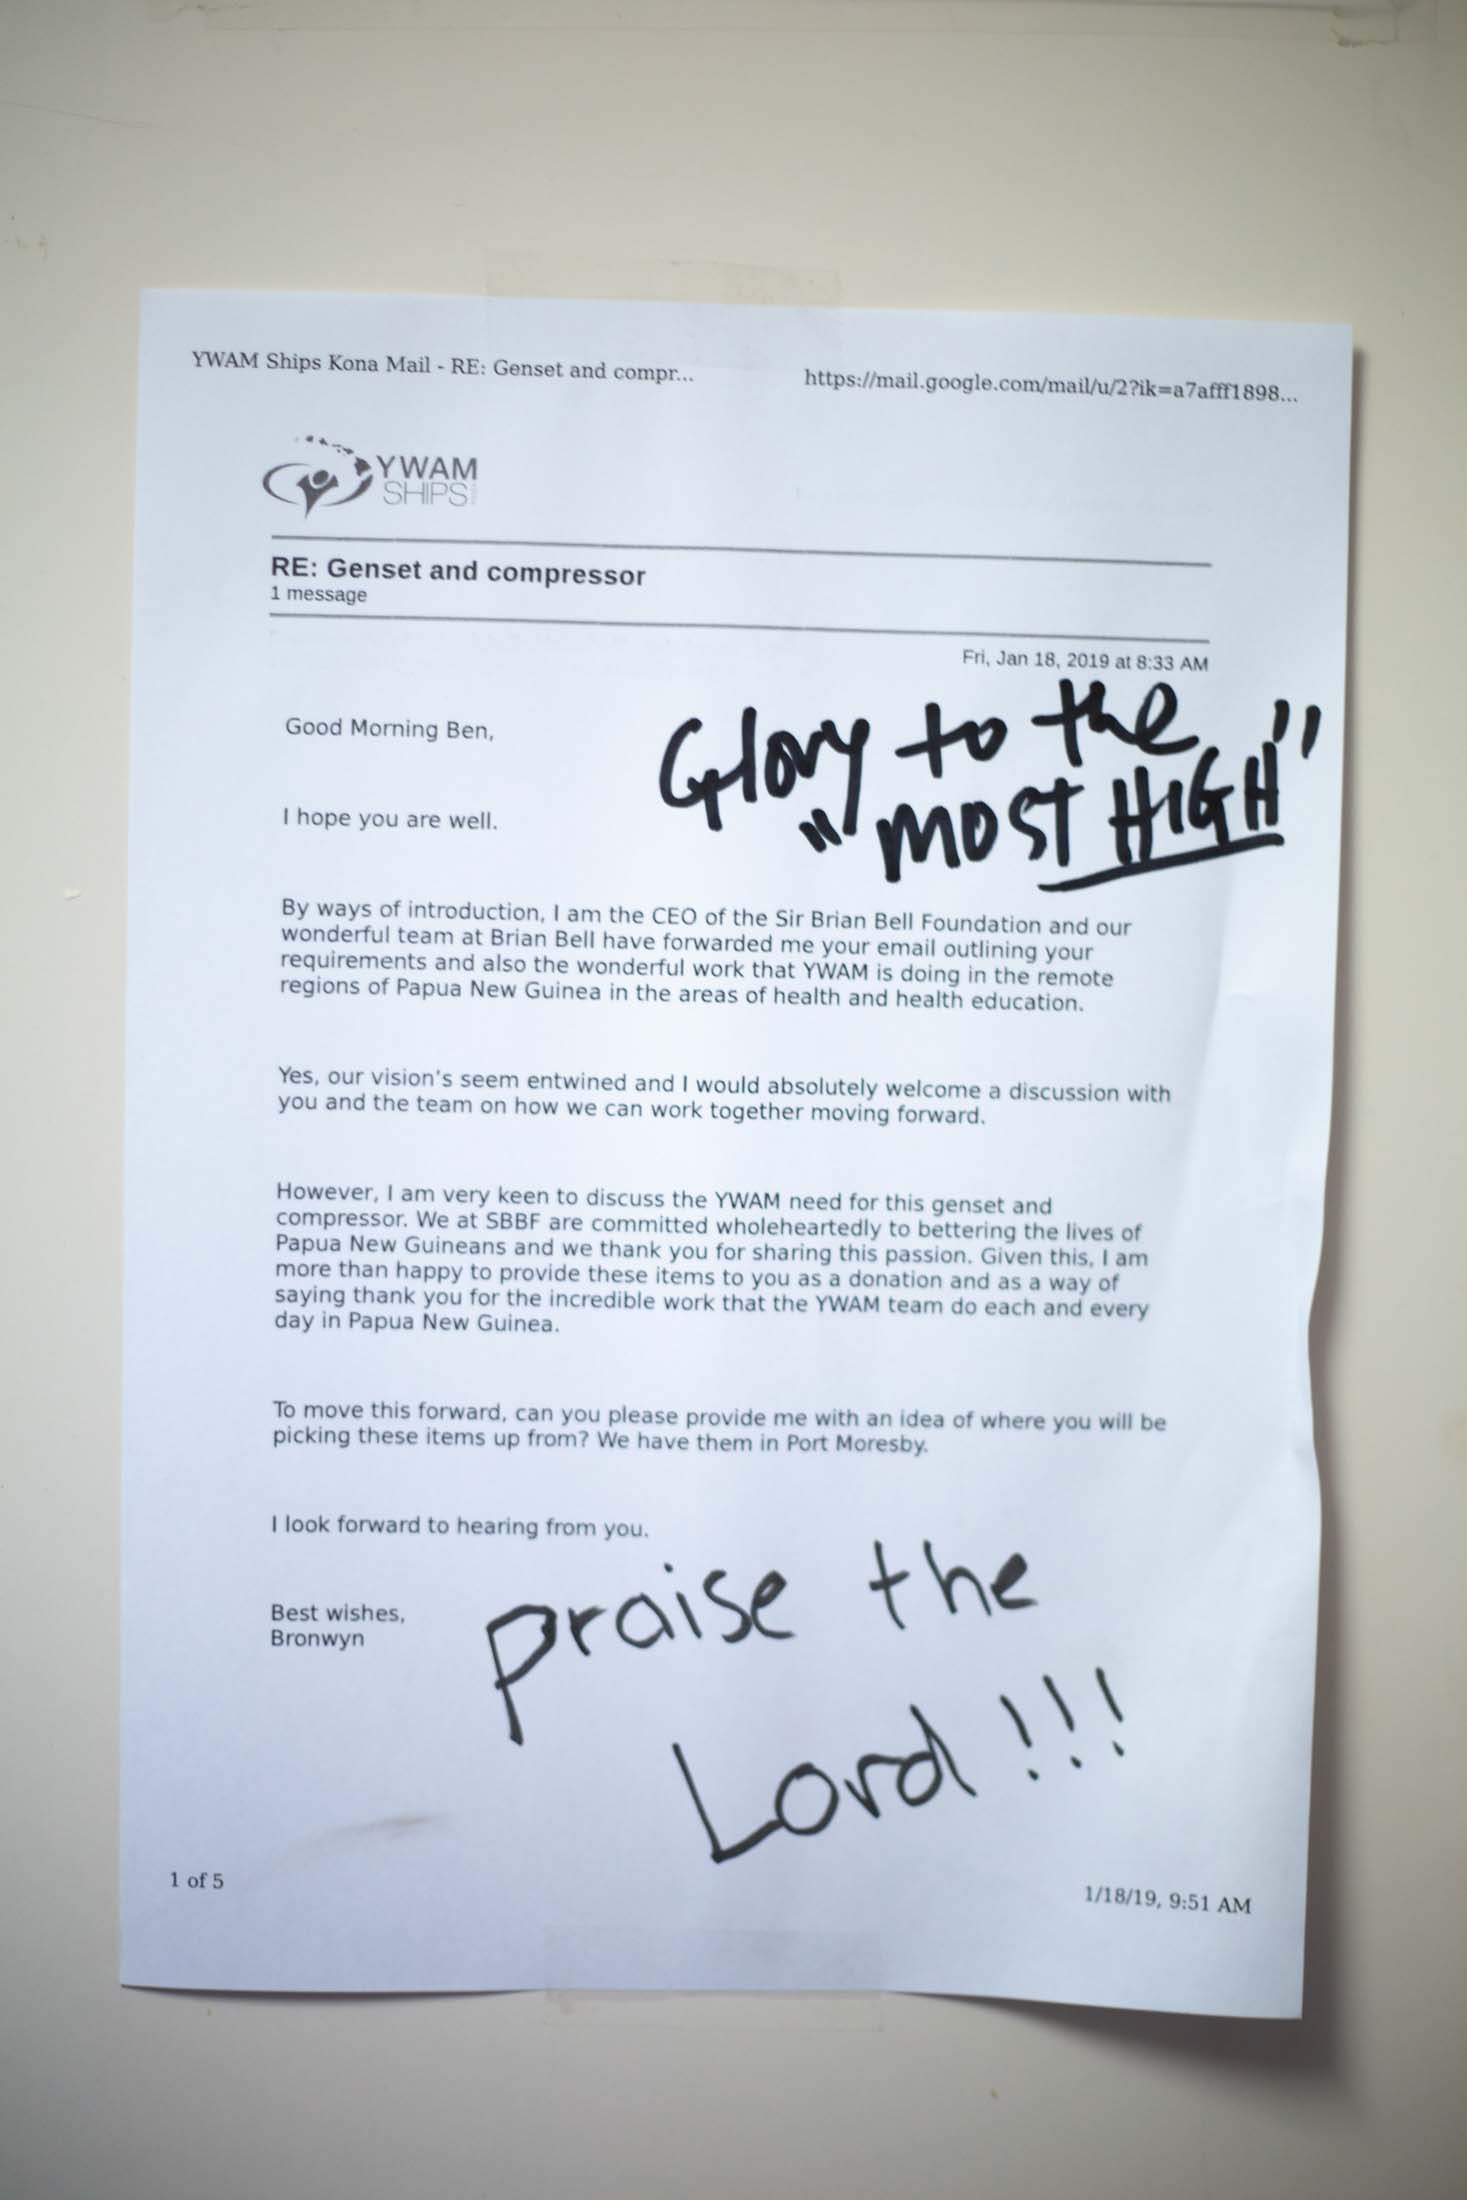 YWAM Ships Kona Mail - RE: Genset and compr...
https://mail.google.com/mail/u/2?ik=a7afff1898...
YWAM
SHIPS
RE: Genset and compressor
1 message
Fri, Jan 18, 2019 at 8:33 AM
Glory to the
"MOST HIGH"
Good Morning Ben,
I hope you are well.
By ways of introduction, I am the CEO of the Sir Brian Bell Foundation and our
wonderful team at Brian Bell have forwarded me your email outlining your
requirements and also the wonderful work that YWAM is doing in the remote
regions of Papua New Guinea in the areas of health and health education.
Yes, our vision's seem entwined and I would absolutely welcome a discussion with
you and the team on how we can work together moving forward.
However, I am very keen to discuss the YWAM need for this genset and
compressor. We at SBBF are committed wholeheartedly to bettering the lives of
Papua New Guineans and we thank you for sharing this passion. Given this, I am
more than happy to provide these items to you as a donation and as a way of
saying thank you for the incredible work that the YWAM team do each and every
day in Papua New Guinea.
To move this forward, can you please provide me with an idea of where you will be
picking these items up from? We have them in Port Moresby.
I look forward to hearing from you.
Best wishes,
Bronwyn
praise the
Lord!!!
1 of 5
1/18/19, 9:51 AM